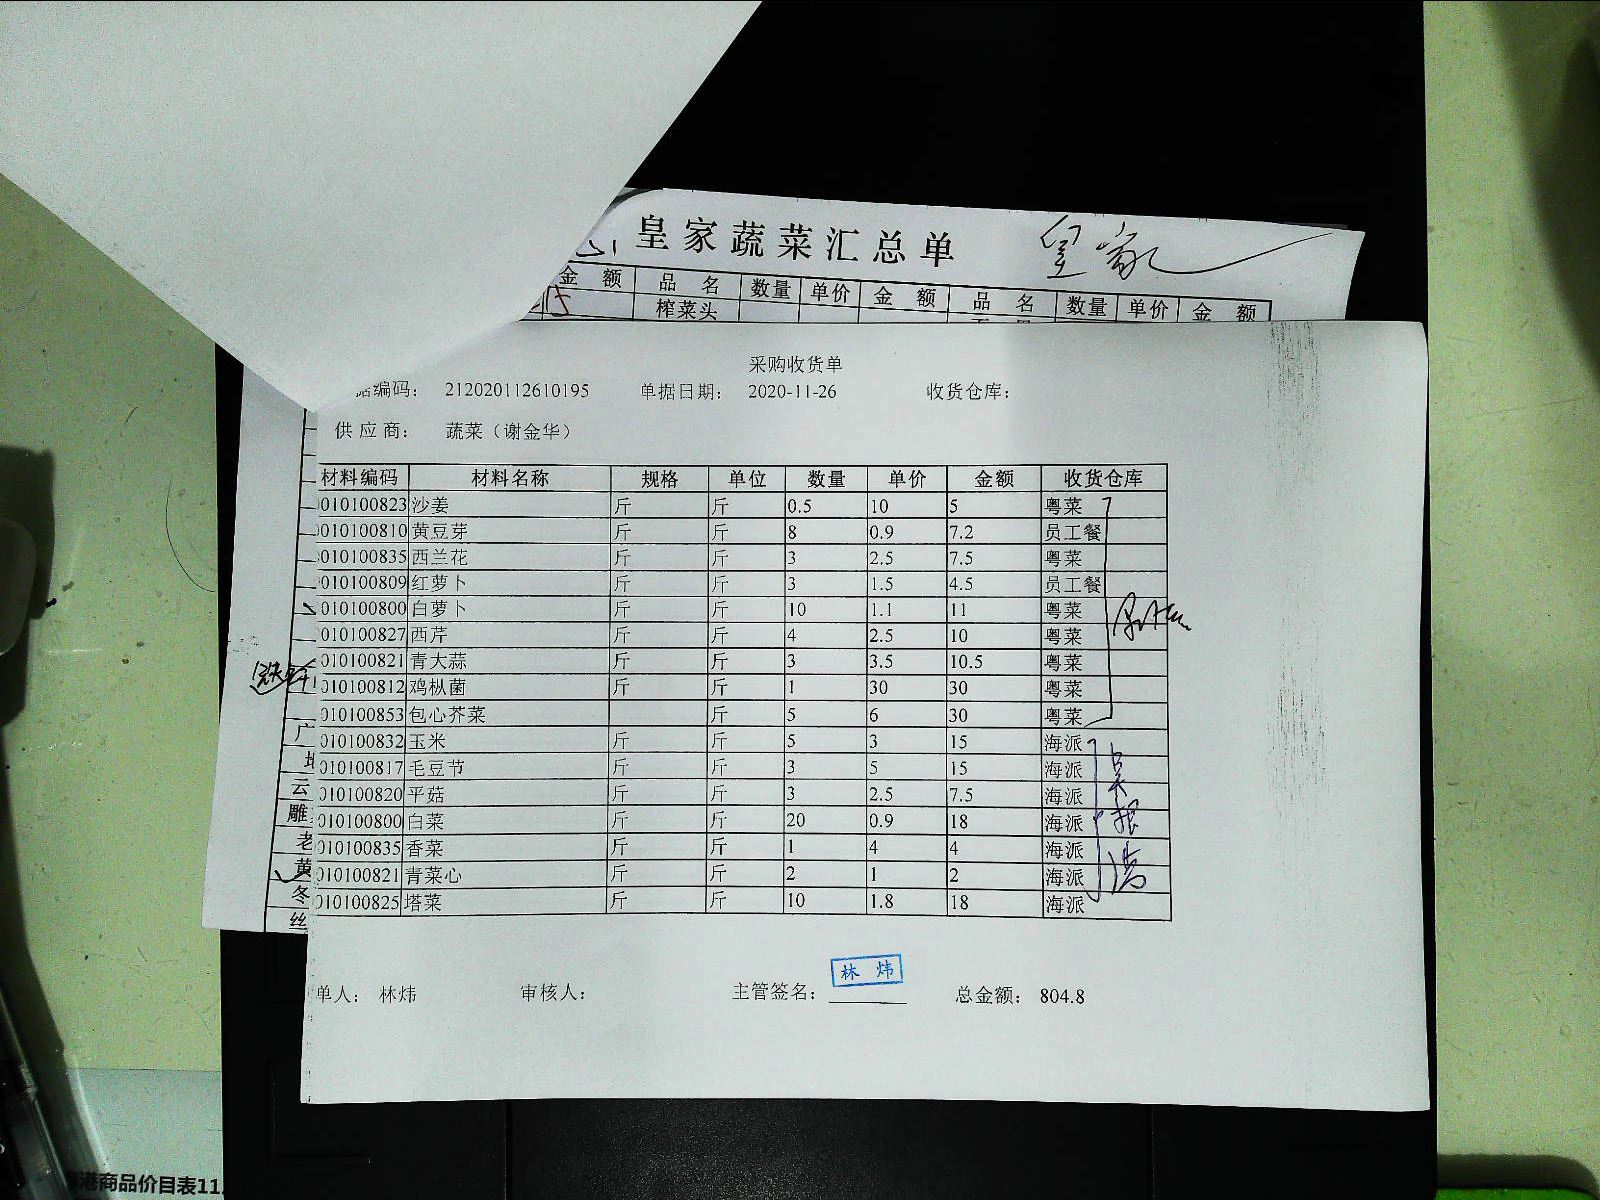 皇家蔬菜汇总单 皇家
金 额 品 名 数量 单价 金 额 品 名 数量 单价 金 额
榨菜头
采购收货单
据编码： 212020112610195 单据日期： 2020-11-26 收货仓库：
供应商： 蔬菜（谢金华）
材料编码 材料名称 规格 单位 数量 单价 金额 收货仓库
010100823 沙姜 斤 斤 0.5 10 5 粤菜
010100810 黄豆芽 斤 斤 8 0.9 7.2 员工餐
010100835 西兰花 斤 斤 3 2.5 7.5 粤菜
010100809 红萝卜 斤 斤 3 1.5 4.5 员工餐
010100800 白萝卜 斤 斤 10 1.1 11 粤菜
010100827 西芹 斤 斤 4 2.5 10 粤菜
010100821 青大蒜 斤 斤 3 3.5 10.5 粤菜
010100812 鸡枞菌 斤 斤 1 30 30 粤菜
010100853 包心芥菜 斤 5 6 30 粤菜
010100832 玉米 斤 斤 5 3 15 海派
010100817 毛豆节 斤 斤 3 5 15 海派
010100820 平菇 斤 斤 3 2.5 7.5 海派
010100800 白菜 斤 斤 20 0.9 18 海派
010100835 香菜 斤 斤 1 4 4 海派
010100821 青菜心 斤 斤 2 1 2 海派
010100825 塔菜 斤 斤 10 1.8 18 海派
单人： 林炜 审核人： 主管签名： 林炜 总金额： 804.8
广
云
雕
老
黄
冬
丝
港商品价目表11